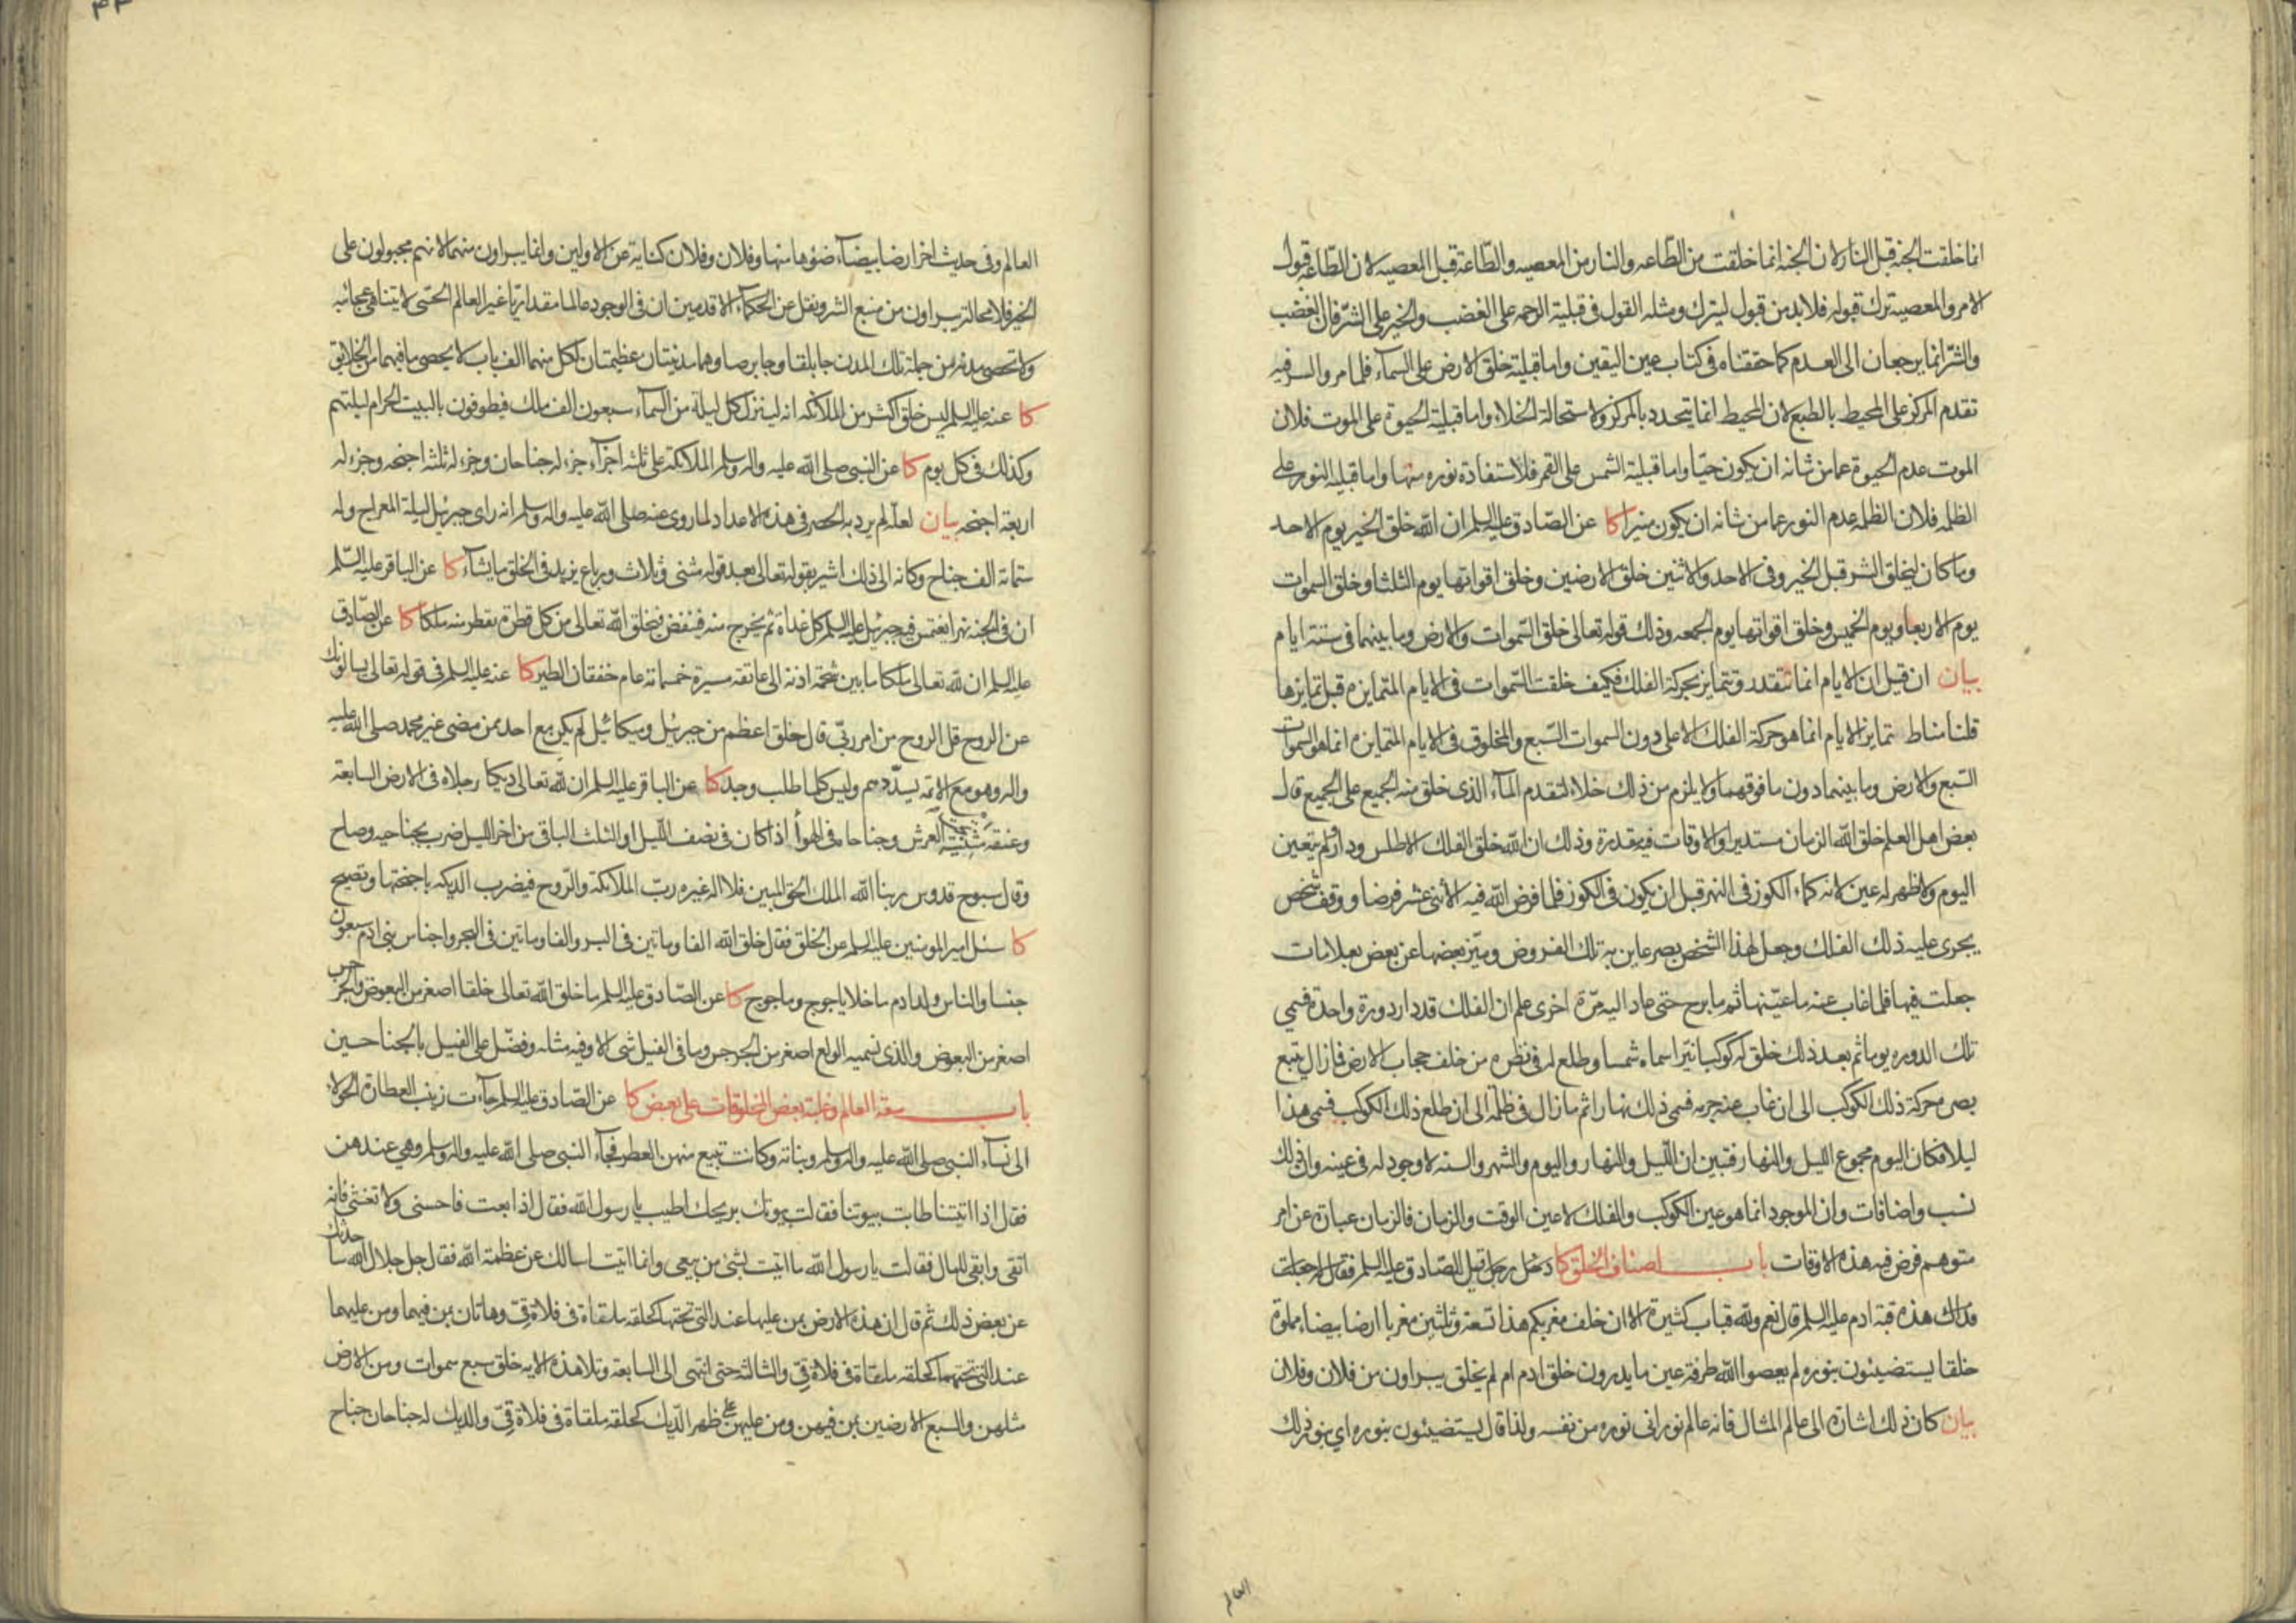 انما خلقت الجنه قبل النار لان الجنه انما خلقت من الطّاعه والنار من المعصيه والطّاعة قبل المعصيه لان الطّاعه قبول
الامر والمعصيه ترك قبوله فلا بد من قبول ليترك ومثله القول فى قبلية الرحمه على الغضب والخير على الشرّ فان الغضب
والشرّ انما يرجعان الى العدم كما حققناه فى كتاب عين اليقين واما قبلية خلق الارض على السمآء فلما مر والسر فيه
تقدم المركز على المحيط بالطبع لان المحيط انما يتحدد بالمركز ولاستحالة الخلاء واما قبلية الحيوة على الموت فلان
الموت عدم الحيوة عما من شانه ان يكون حيّا واما قبلية الشمس على القمر فلاستفادة نوره منها واما قبلية النور على
الظلمه فلان الظلمه عدم النور عما من شانه ان يكون منيرا كا عن الصّادق عليه السلم ان الله خلق الخير يوم الاحد
وما كان ليخلق الشر قبل الخير وفى الاحد والاثنين خلق الارضين وخلق اقواتها يوم الثلثا وخلق السموات
يوم الاربعا ويوم الخميس وخلق اقواتها يوم الجمعه وذلك قوله تعالى خلق السّموات والارض وما بينهما فى ستة ايام
بيان ان قيل ان الايام انما تتقدر وتتمايز بحركة الفلك فكيف خلقت السّموات فى الايام المتمايزه قبل تمايزها
قلنا مناط تمايز الايام انما هو حركة الفلك الاعلى دون السموات السّبع والمخلوق فى الايام المتمايزه انما هو السموات
السّبع والارض وما بينهما دون ما فوقهما ولا يلزم من ذلك خلاء لتقدم المآء الذى خلق منه الجميع على الجميع قال
بعض اهل العلم خلق الله الزمان مستديرا والاوقات فيه مقدرة وذلك ان الله خلق الفلك الاطلس ودار لم يتعين
اليوم ولا ظهر له عين لانه كماء الكوز فى النهر قبل ان يكون فى الكوز فلما فرض الله فيه الاثنى عشر فرضا ووقف شخص
يجرى عليه ذلك الفلك وجعل لهذا الشخص بصر عاين به تلك الفروض وميّز بعضها عن بعض بعلامات
جعلت فيها فلما غاب عنه ما عيّنها ثم ما برح حتى عاد اليه مرّة اخرى علم ان الفلك قد دار دورة واحدة فسمى
تلك الدوره يوما ثم بعد ذلك خلق له كوكبا نيّرا سماه شمسا وطلع له فى نظره من خلف حجاب الارض فما زال يتبع
بصره حركة ذلك الكوكب الى ان غاب عنه جرمه فسمى ذلك نهارا ثم ما زال فى ظلمة الى ان طلع ذلك الكوكب فسمى هذا
ليلا فكان اليوم مجموع الليل والنهار فتبين ان اللّيل والنهار واليوم والشهر والسنه لا وجود له فى عينه وان ذلك
نسب واضافات وان الموجود انما هو عين الكوكب والفلك لا عين الوقت والزمان فالزمان عبارة عن امر
متوهم فرض فيه هذه الاوقات باب اصناف الخلق كا دخل رجل على الصّادق عليه السلم فقال له جعلت
فداك هذه قبة ادم عليه السلم قال نعم ولله قباب كثيرة الا ان خلف مغربكم هذا تسعة وثلثين مغربا ارضا بيضاء مملوة
خلقا يستضيئون بنوره لم يعصوا الله طرفة عين ما يدرون خلق ادم ام لم يخلق يبراون من فلان وفلان
بيان كان ذلك اشارة الى عالم المثال فانه عالم نورانى نوره من نفسه ولذا قال يستضيئون بنوره اى بنور ذلك
العالم
العالم وفى حديث اخر ارضا بيضآء ضوؤها منها وفلان وفلان كناية عن الاولين وانما يبراون منهما لانهم مجبولون على
الخير فلا محالة يبراون من منبع الشر ونقل عن الحكمآء الاقدمين ان فى الوجود عالما مقداريّا غير العالم الحسّى لا يتناهى عجائبه
ولا تحصى مدنه من جملة تلك المدن جابلقا وجابرصا وهما مدينتان عظيمتان لكل منهما الف باب لا يحصى ما فيهما من الخلايق
كا عنه عليه السلم ليس خلق اكثر من الملائكه انه لينزل كل ليلة من السمآء سبعون الف ملك فيطوفون بالبيت الحرام ليلتهم
وكذلك فى كل يوم كا عن النبى صلى الله عليه واله وسلم الملائكة على ثلثه اجزآء جزء له جناحان وجزء له ثلثه اجنحه وجزء له
اربعة اجنحه بيان لعلّه لم يرد به الحصر فى هذه الاعداد لما روى عنه صلى الله عليه واله وسلم انه راى جبرئيل ليلة المعراج وله
ستمائه الف جناح وكانه الى ذلك اشير بقوله تعالى بعد قوله مثنى وثلاث ورباع يزيد فى الخلق ما يشآء كا عن الباقر عليه السّلم
ان فى الجنه نهرا يغتمس فيه جبرئيل عليه السلم كل غداة ثم يخرج منه فينفض فيخلق الله تعالى من كل قطرة يقطر منه ملكا كا عن الصّادق
عليه السلم ان لله تعالى ملكا ما بين شحمة اذنه الى عاتقه مسيرة خمسمائة عام خفقان الطير كا عنه عليه السلم فى قوله تعالى يسالونك
عن الروح قل الروح من امر ربّى قال خلق اعظم من جبرئيل وميكائيل لم يكن مع احد ممن مضى غير محمد صلى الله عليه
واله وهو مع الائمة يسدّدهم وليس كلما طلب وجد كا عن الباقر عليه السلم ان لله تعالى ديكا رجلاه فى الارض السابعة
وعنقه مثنيّة تحت العرش وجناحاه فى الهوآ اذا كان فى نصف اللّيل او الثلث الباقى من اخر الليل ضرب بجناحيه وصاح
وقال سبوح قدوس ربنا الله الملك الحق المبين فلا اله غيره ربّ الملائكة والرّوح فيضرب الديكه باجنحتها وتصيح
كا سئل امير المومنين عليه السلم عن الخلق فقال خلق الله الفا وماتين فى البر والفا وماتين فى البحر واجناس بنى ادم سبعون
جنسا والناس ولد ادم ما خلا ياجوج وماجوج كا عن الصّادق عليه السلم ما خلق الله تعالى خلقا اصغر من البعوض والجرجس
اصغر من البعوض والذى نسميه الولع اصغر من الجرجس وما فى الفيل شى الا وفيه مثله وفضّل على الفيل بالجناحين
باب سعة العالم وغلبة بعض المخلوقات على بعض كا عن الصّادق عليه السلم جآءت زينب العطارة الحولاء
الى نسآء النبى صلى الله عليه واله وسلم وبناته وكانت تبيع منهن العطر فجآء النبى صلى الله عليه واله وسلم وهى عندهن
فقال اذا اتيتنا طابت بيوتنا فقالت بيوتك بريحك اطيب يا رسول الله فقال اذا بعت فاحسنى ولا تغشى فانه
اتقى وابقى للمال فقالت يا رسول الله ما اتيت بشئ من بيعى وانما اتيت اسالك عن عظمة الله فقال جل جلال الله ساحدثك
عن بعض ذلك ثم قال ان هذه الارض بمن عليها عند التى تحتها كحلقه ملقاة فى فلاة قىّ وهاتان بمن فيهما ومن عليهما
عند التى تحتهما كحلقه ملقاة فى فلاة قىّ والثالثه حتى انتهى الى السابعة وتلا هذه الايه خلق سبع سموات ومن الارض
مثلهن والسبع الارضين بمن فيهن ومن عليهن على ظهر الدّيك كحلقه ملقاة فى فلاة قىّ والديك له جناحان جناح